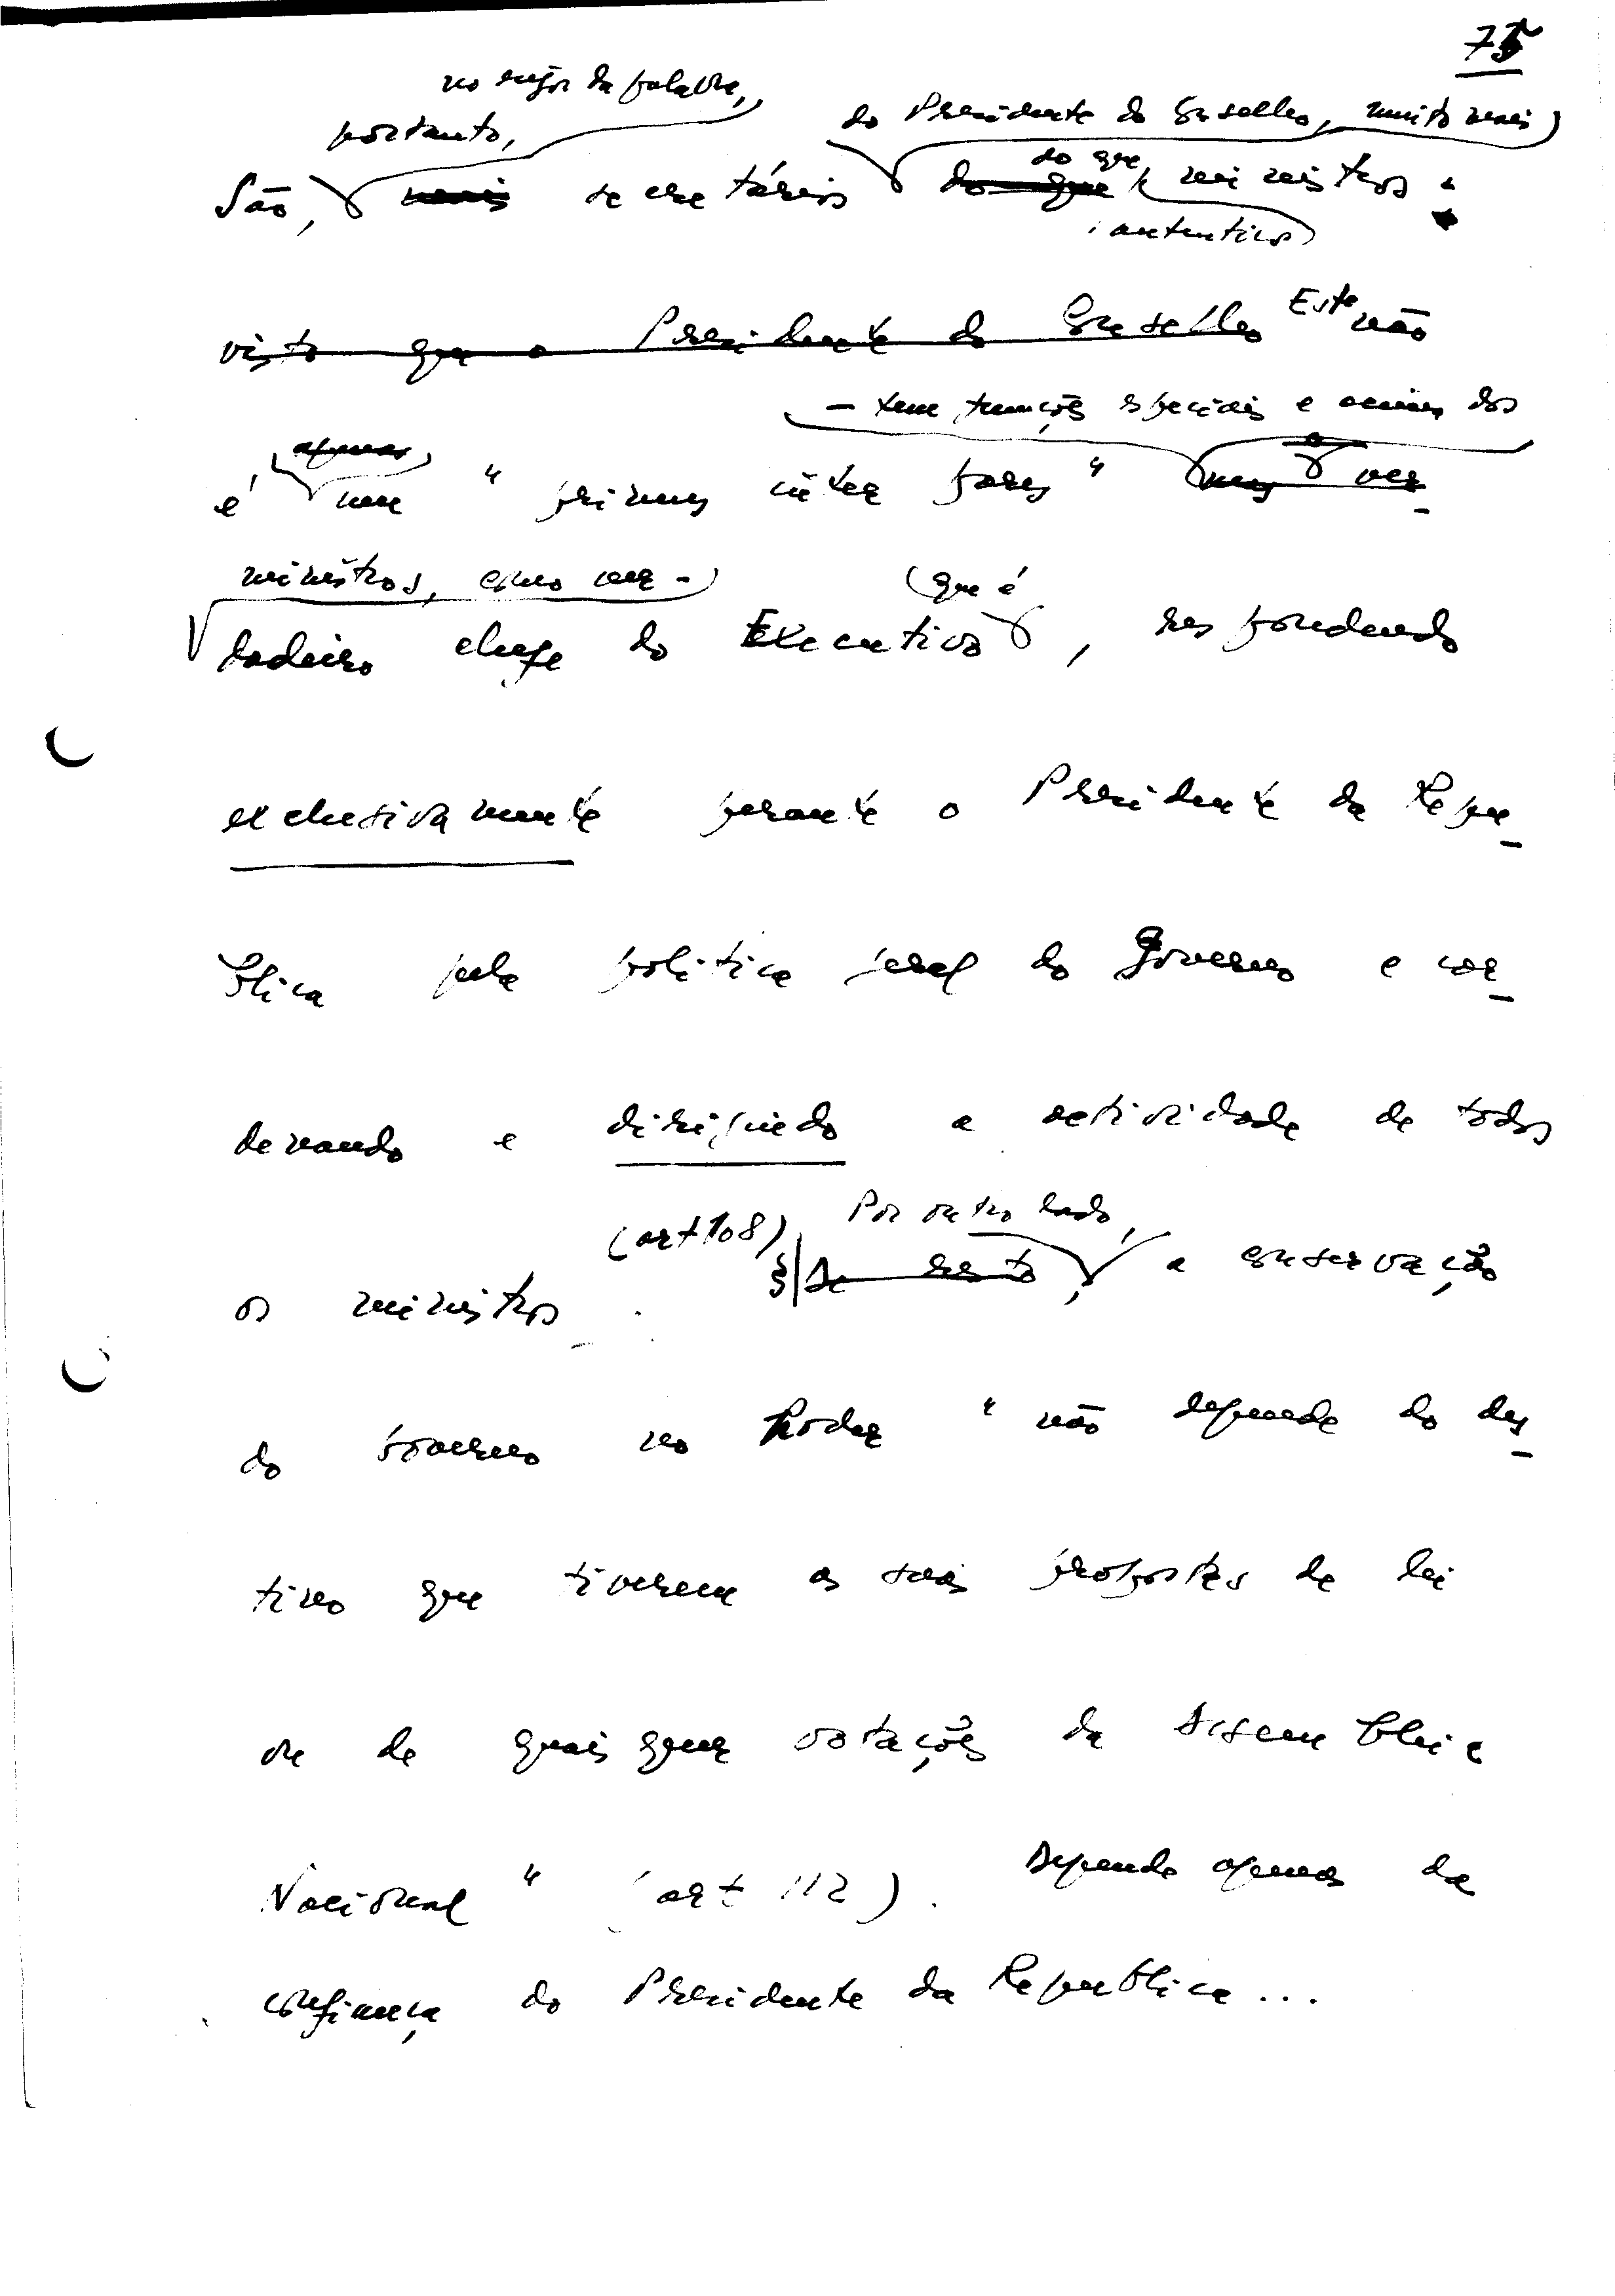 75
no rigor da palavra,
portanto,
do Presidente do Conselho, muito mais
do que
São, mais secretários do que ministros.
autênticos
visto que o Presidente do Conselho Este não
- tem funções especiais e acima dos
apenas
é um "primus inter pares" mas o ver-
ministros, como ver-
(que é
dadeiro chefe do Executivo, respondendo
exclusivamente perante o Presidente da Repu-
blica pela politica geral do Governo e coor-
denando e dirigindo a actividade de todos
(art 108) Por outro lado,
os ministros. De resto, a conservação
do Governo no Poder "não depende do des-
tino que tiverem as suas propostas de lei
ou de quaisquer votações da Assembleia
Nacional" (art 112). Depende apenas da
confiança do Presidente da Republica...